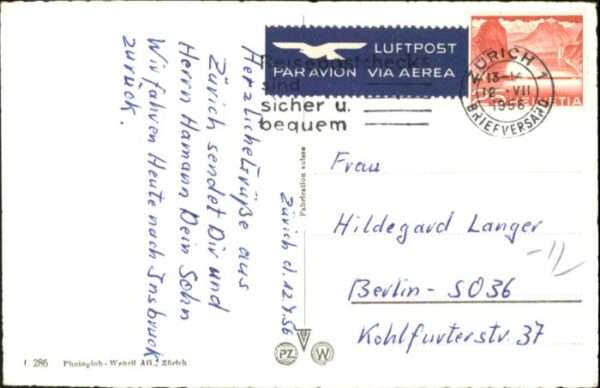 LUFTPOST
PAR AVION VIA AEREA
Reisepostchecks
sind
sicher u.
bequem
ZÜRICH 1
12. VII
1956
BRIEFVERSAND
HELVETIA
Zürich d. 12.7.56
Herzliche Grüße aus
Zürich sendet Dir und
Herrn Hamann Dein Sohn
Wir fahren Heute nach Insbruck
zurück.
Fabrication suisse
Frau
Hildegard Langer
Berlin-SO36
Kohlfurterstr. 37
PZ W
f 286 Photoglob-Wehrli AG., Zürich